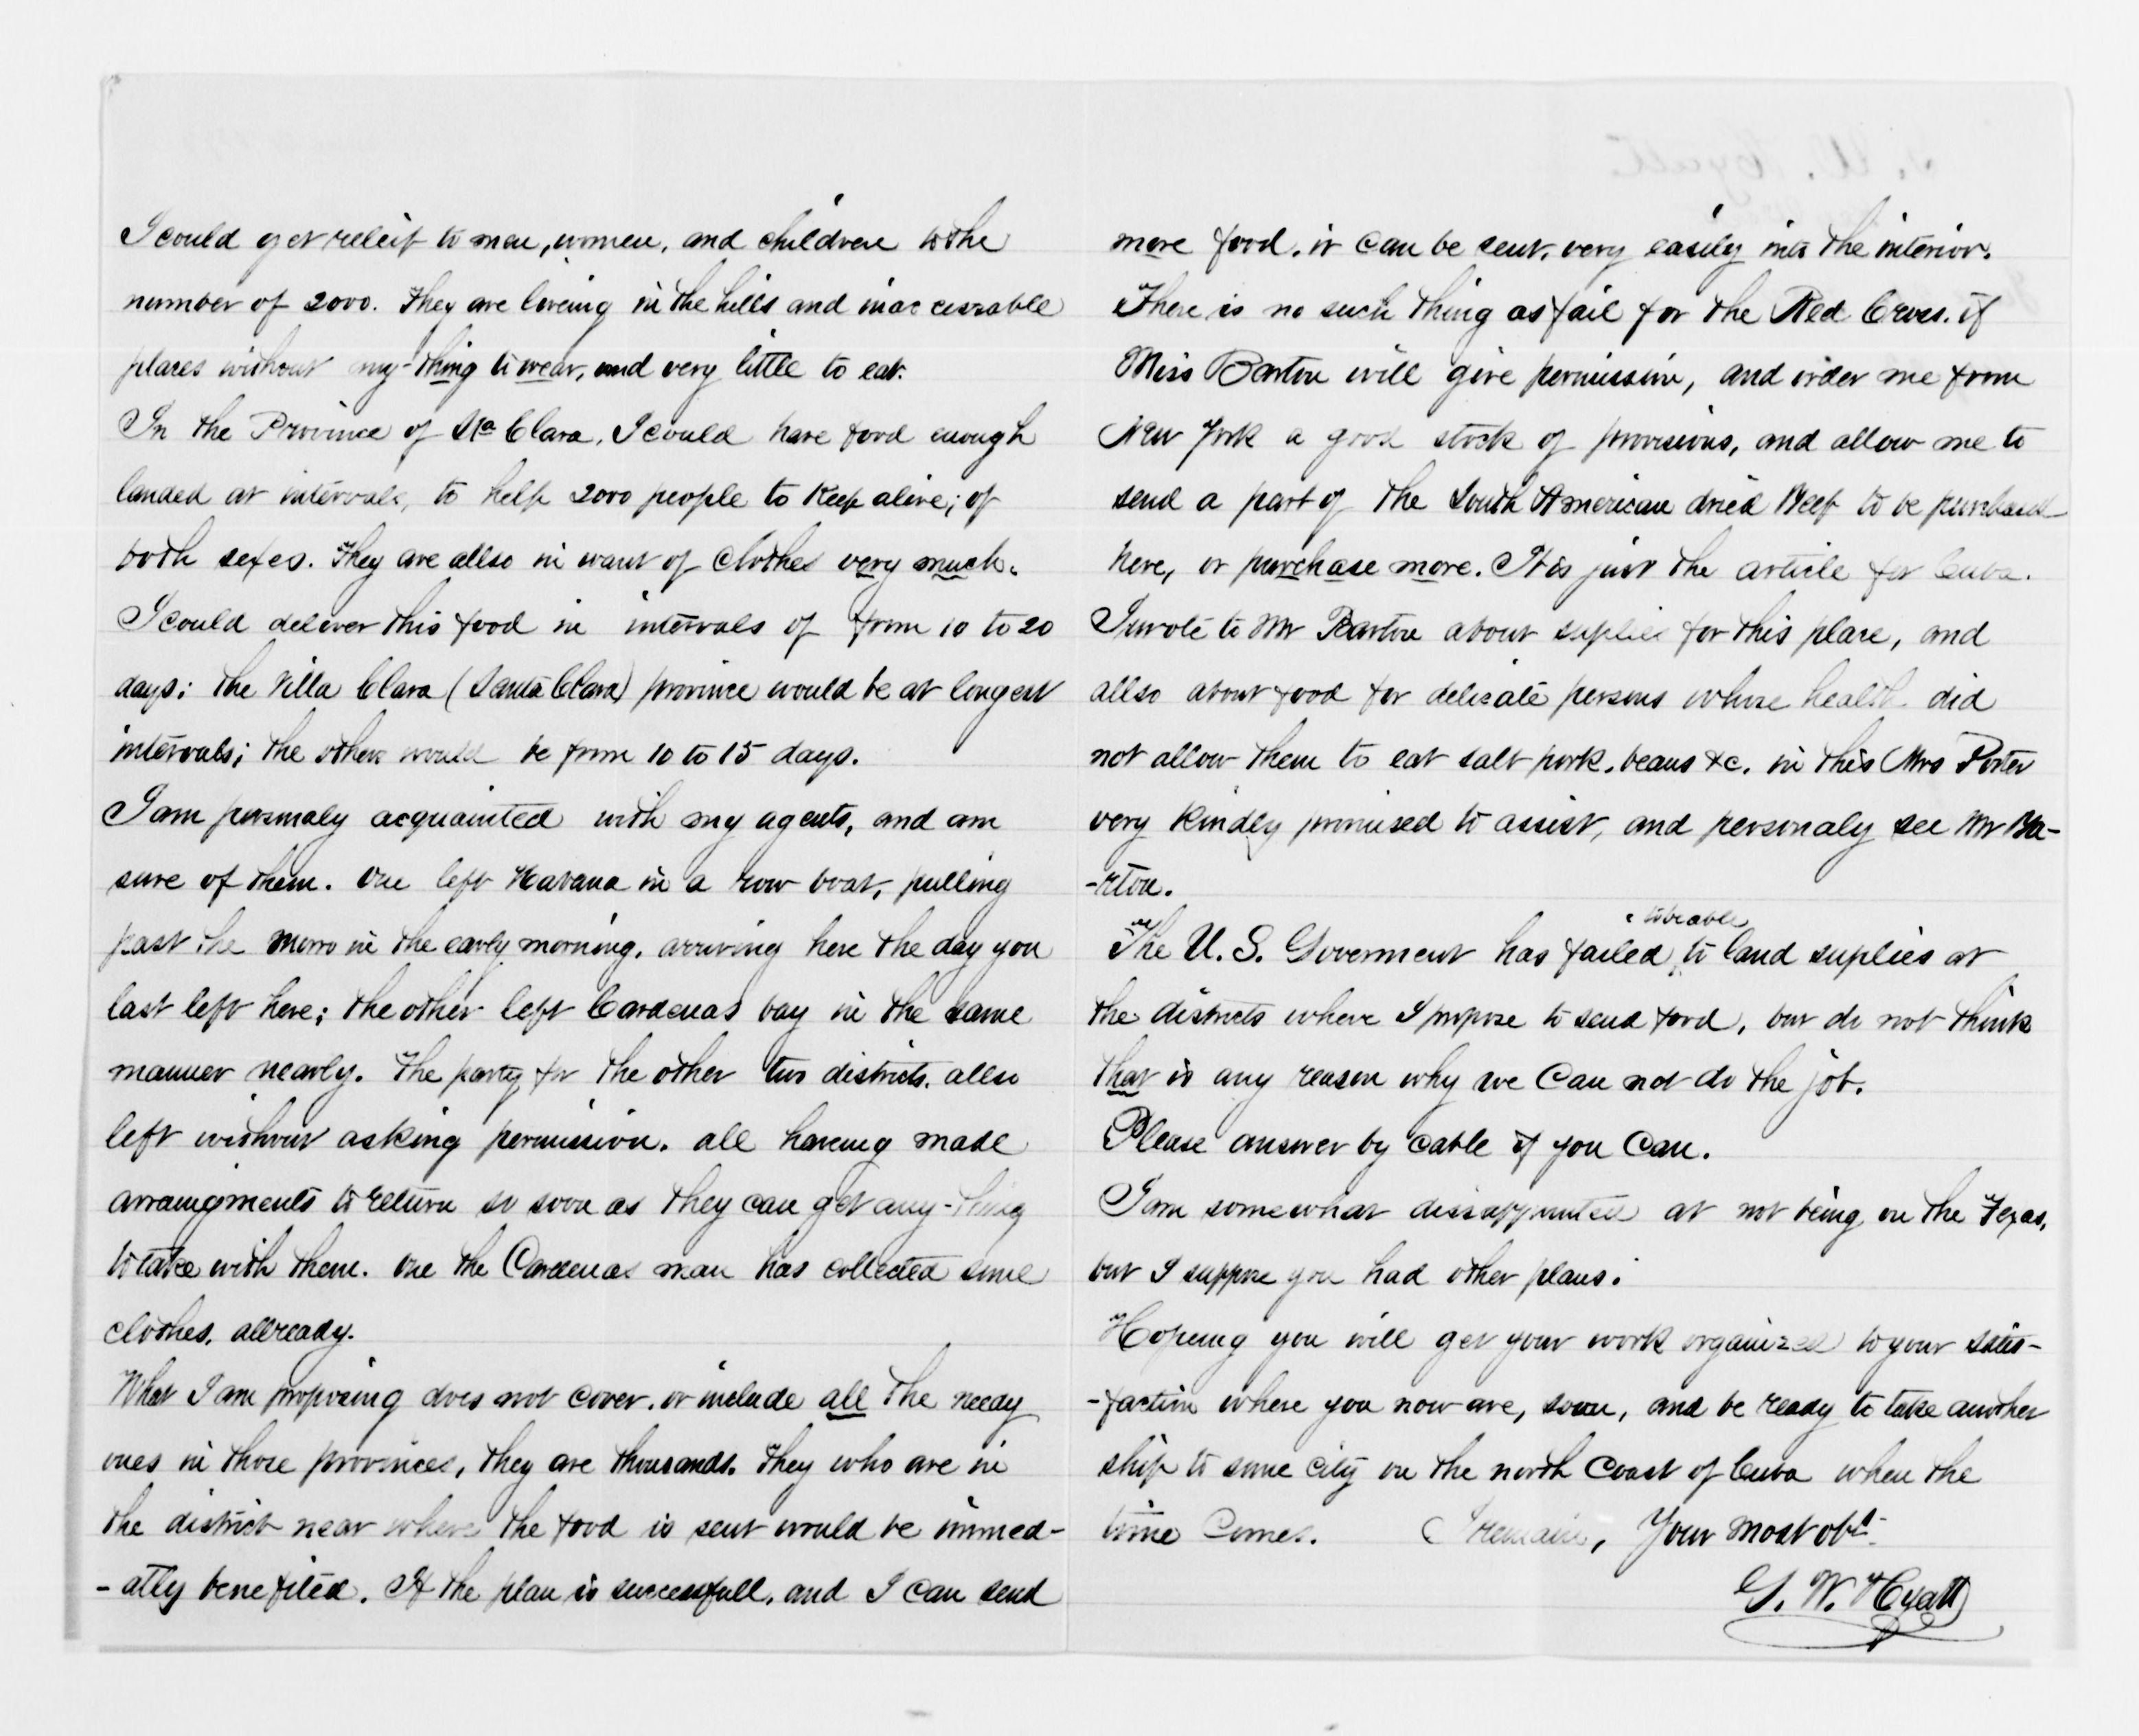 I could get releif to men, women, and children to the
number of 2000. They are liveing in the hills and inaccessable
places without any-thing to wear, and very little to eat.
In the Province of Sta Clara, I could have food enough
landed at intervals, to help 2000 people to Keep alive; of
both sexes. They are allso in want of Clothes very much.
I could deliver this food in intervals of from 10 to 20
days: the Villa Clara (Santa Clara) province would be at longest
intervals; the others would be from 10 to 15 days.
I am personaly acquainted with my agents, and am
sure of them. One left Havana in a row boat, pulling
past the Morro in the early morning, arriving here the day you
last left here; the other left Cardenas bay in the same
manner nearly. The party for the other two districts, allso
left without asking permission, all haveing made
arrangements to return so soon as they can get any-thing
to take with them. One the Cardenas man has collected some
clothes, allready.
What I am proposing does not cover, or include all the needy
ones in those provinces, they are thousands. They who are in
the district near where the food is sent would be immed-
-atly benefited. If the plan is successfull, and I can send
more food, it can be sent, very easily into the interior.
There is no such thing as fail for the Red Cross. if
Miss Barton will give permission, and order me from
New York a good stock of provisions, and allow me to
send a part of the South American dried Beef to be purchased
here, or purchase more. It is just the article for Cuba.
I wrote to Mr Barton about suplies for this place, and
allso about food for delicate persons whose health did
not allow them to eat salt pork, beans &c. in this Mrs Porter
very Kindly promised to assist, and personaly see Mr Ba-
-rton.
to be able
The U. S. Goverment has failed, to land suplies at
the districts where I propose to send food, but do not think
that is any reason why we Can not do the job.
Please answer by Cable if you Can.
I am somewhat dissappointed at not being on the Texas,
but I suppose you had other plans.
Hopeing you will get your work organized to your satis-
-faction where you now are, soon, and be ready to take another
ship to some City on the north Coast of Cuba when the
time Comes. I remain, Your most obt
G. W. Hyatt